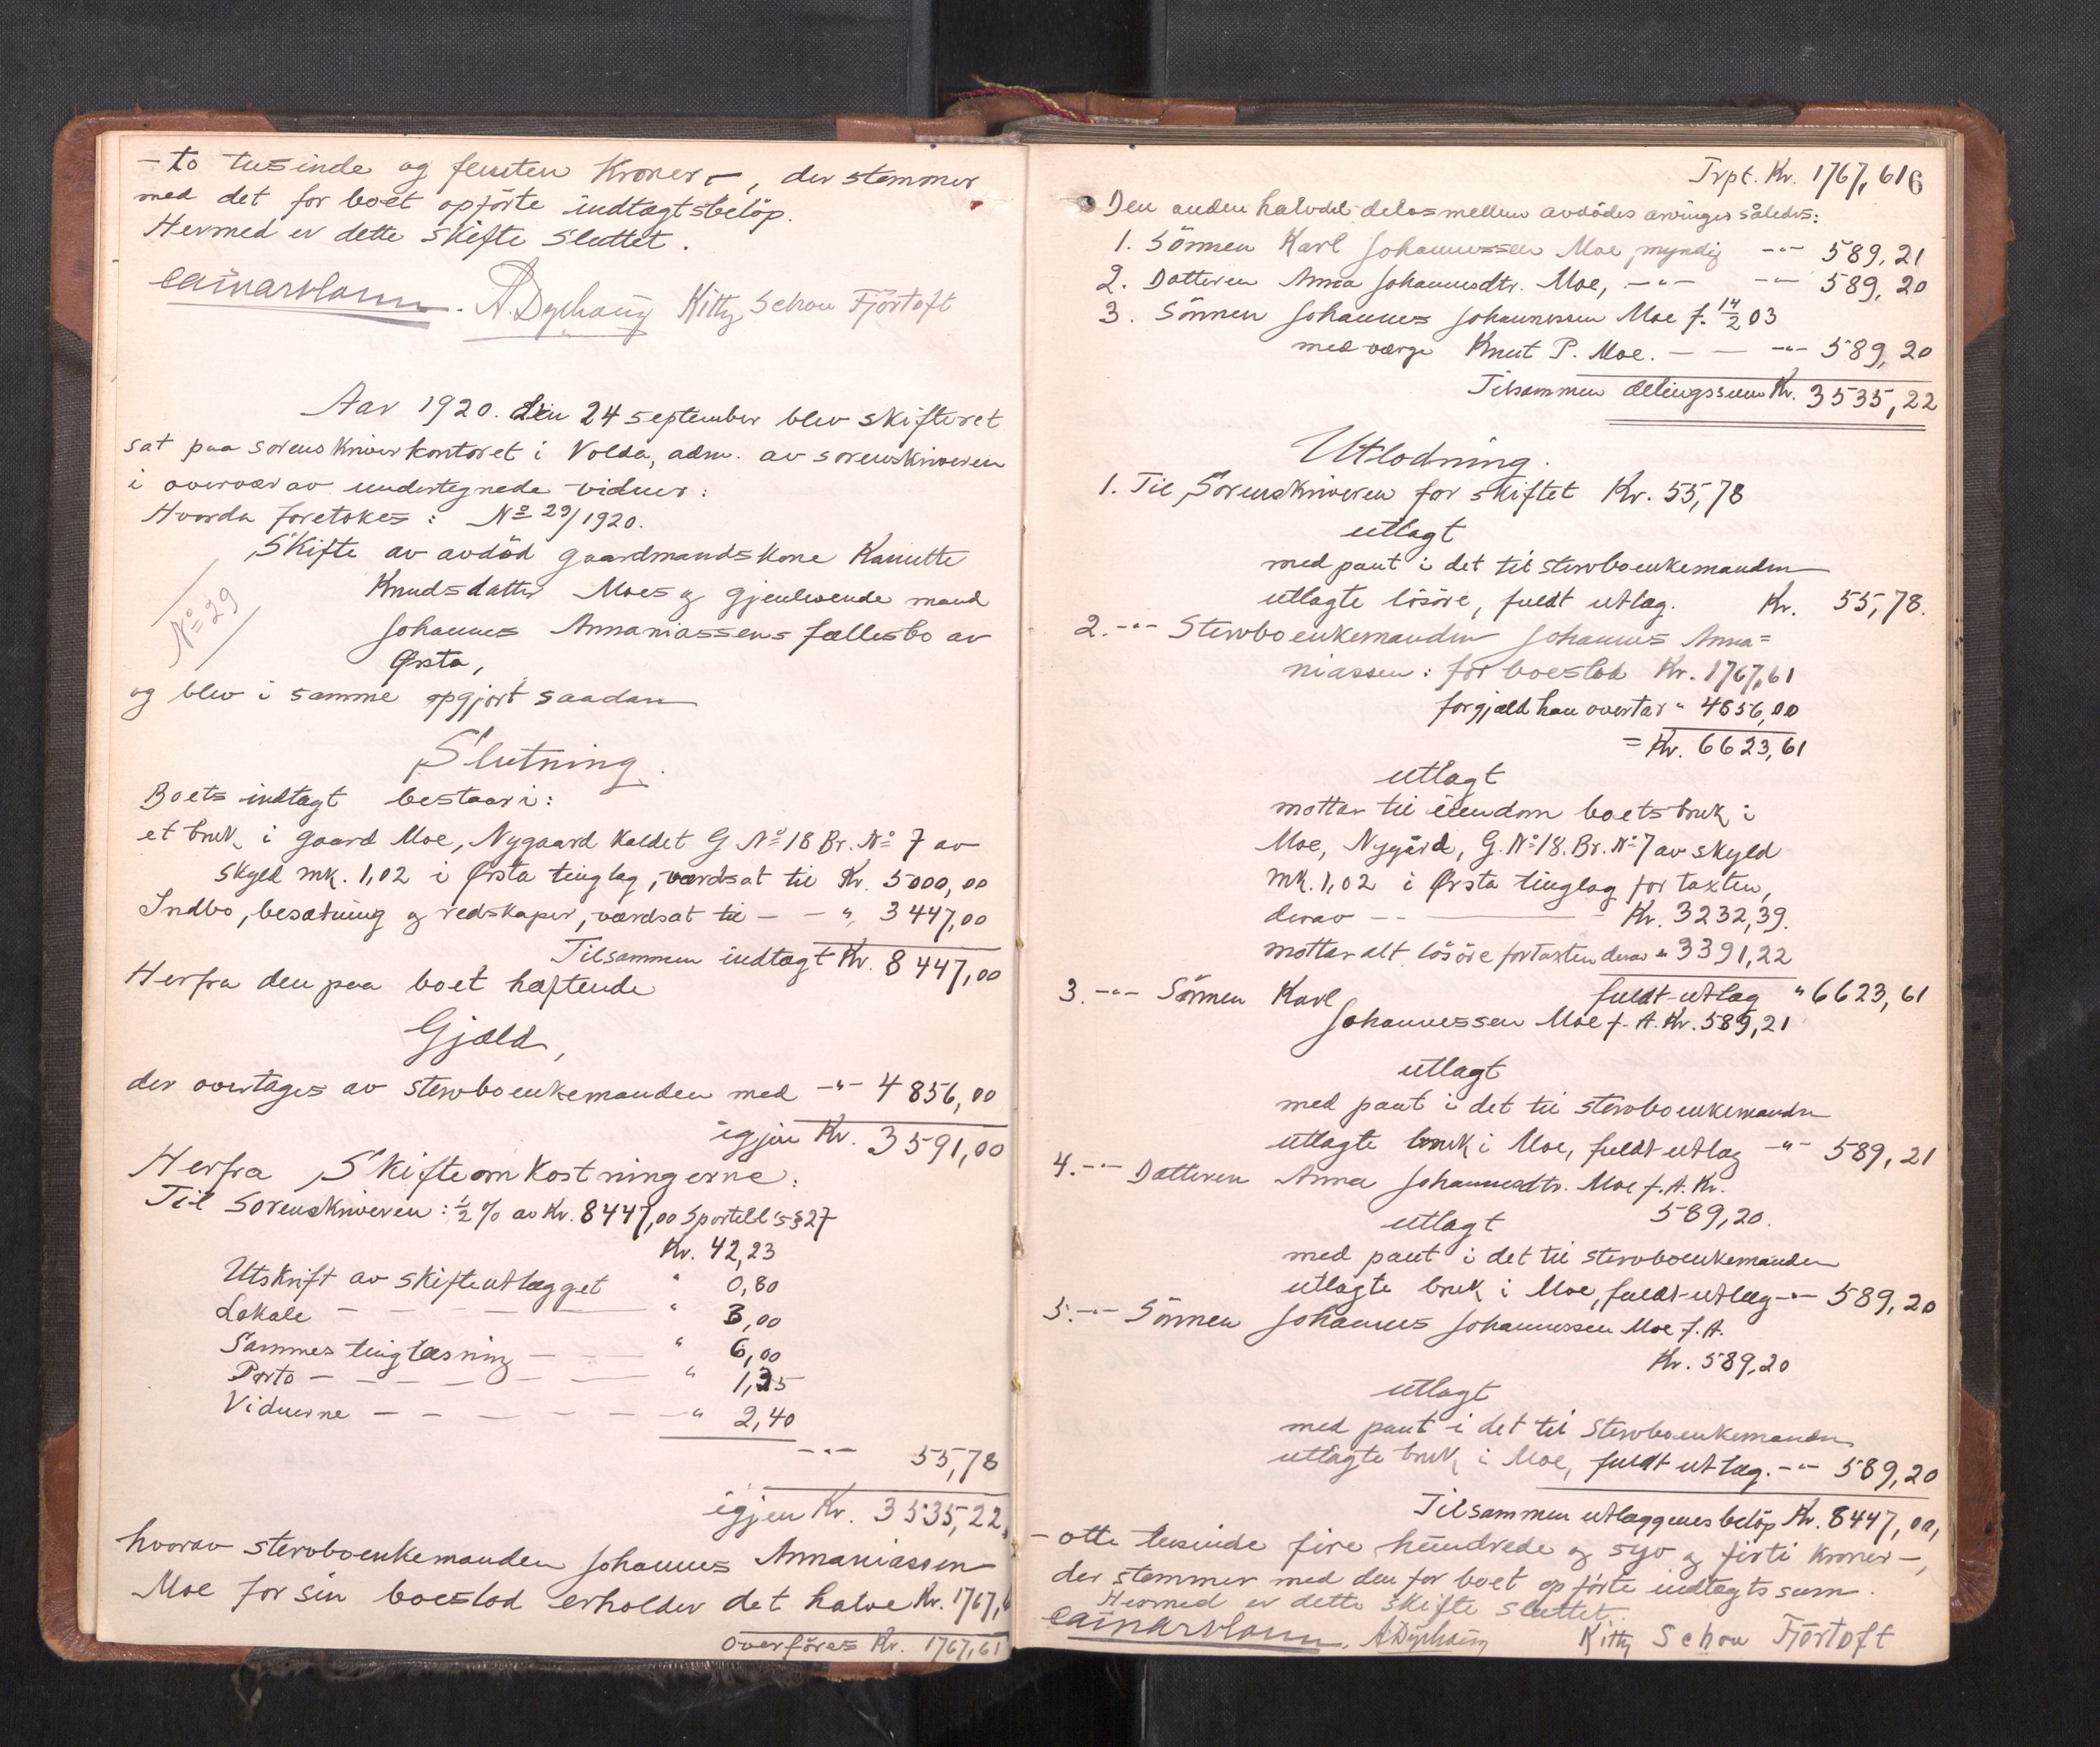 - to tusinde og femten Kroner -, der stemmer
med det for boet opförte indtægtsbelöp.
Hermed er dette Skifte Sluttet.
Kitty Schou Fjörtoft
Aar 1920. den 24 september blev skifteret
sat paa sorenskriverkontoret i Volda, adm. av sorenskriveren
i overvær av undertegnede vidner:
Hvorda foretokes: No 29/1920.
No 29
Skifte av avdöd gaardmandskone Kanutte
Knudsdatter Moes og gjenlevende mand
Johannes Annaniassens fællesbo av
Ørsta,
og blev i samme opgjort saadan
Slutning.
Boets indtægt bestaar i:
et bruk i gaard Moe, Nygaard kaldet G No 18 Br. No 7 av
skyld mk. 1,02 i Ørsta tinglag, værdsat til Kr. 5000,00
Indbo, besætning og redskaper, værdsat til - - " 3447,00
Tilsammen indtægt Kr. 8447,00
Herfra den paa boet hæftende
Gjæld,
der overtages av stervboenkemanden med -"- 4856,00
igjen Kr. 3591,00
Herfra Skifteomkostningerne:
Til Sorenskriveren: ½ % av Kr. 8447,00 Sportell's § 27
Kr. 42,23
Utskrift av skifteutlægget " 0,80
Lokale - - - " 3,00
Sammes tinglæsning - - - " 6,00
Porto - - - - - " 1,35
Vidnerne - - - - - " 2,40
-"- 55,78
igjen Kr. 3535,22,
hvorav stervboenkemanden Johannes Annaniassen
Moe for sin boeslod erholder det halve Kr. 1767,6
Overföres Kr. 1767,61
Trpt. Kr. 1767,61 6
Den anden halvdel deles mellem avdödes arvinger således:
1. Sönnen Karl Johannessen Moe, myndig -"- 589,21
2. Datteren Anna Johannesdtr. Moe, -"- -"- 589,20
3. Sönnen Johannes Johannessen Moe f. 14/2 03
med værge Knut P. Moe. - - -"- 589,20
Tilsammen delingssum Kr. 3535,22
Utlodning.
1. Til Sorenskriveren for skiftet Kr. 55,78
utlagt
med pant i det til stervboenkemanden
utlagte lösöre, fuldt utlæg. Kr. 55,78.
2. -"- Stervboenkemanden Johannes Anna=
niassen: for boeslod Kr. 1767,61
for gjæld han overtar " 4856,00
= Kr. 6623,61
utlagt
mottar til eiendom boets bruk i
Moe, Nygård, G. No 18. Br. No 7 av skyld
mk. 1,02 i Ørsta tinglag for taxten,
derav - - Kr. 3232,39.
mottar alt lösöre for taxten derav " 3391,22
fuldt utlæg " 6623,61
3. -"- Sönnen Karl
Johannessen Moe f. A. Kr. 589,21
utlagt
med pant i det til stervboenkemanden
utlagte bruk i Moe, fuldt utlæg -"- 589,21
4. -"- Datteren Anna Johannesdtr. Moe f. A. Kr.
589,20.
utlagt
med pant i det til stervboenkemanden
utlagte bruk i Moe, fuldt utlæg -"- 589,20
5. -"- Sönnen Johannes Johannessen Moe f. A.
Kr. 589,20
utlagt
med pant i det til Stervboenkemanden
utlagte bruk i Moe, fuldt utlæg. -"- 589,20
Tilsammen utlæggenes belöp Kr. 8447,00,
- otte tusinde fire hundrede og syv og firti Kroner -,
der stemmer med den for boet opförte indtægtssum.
Hermed er dette Skifte sluttet.
Kitty Schou Fjörtoft